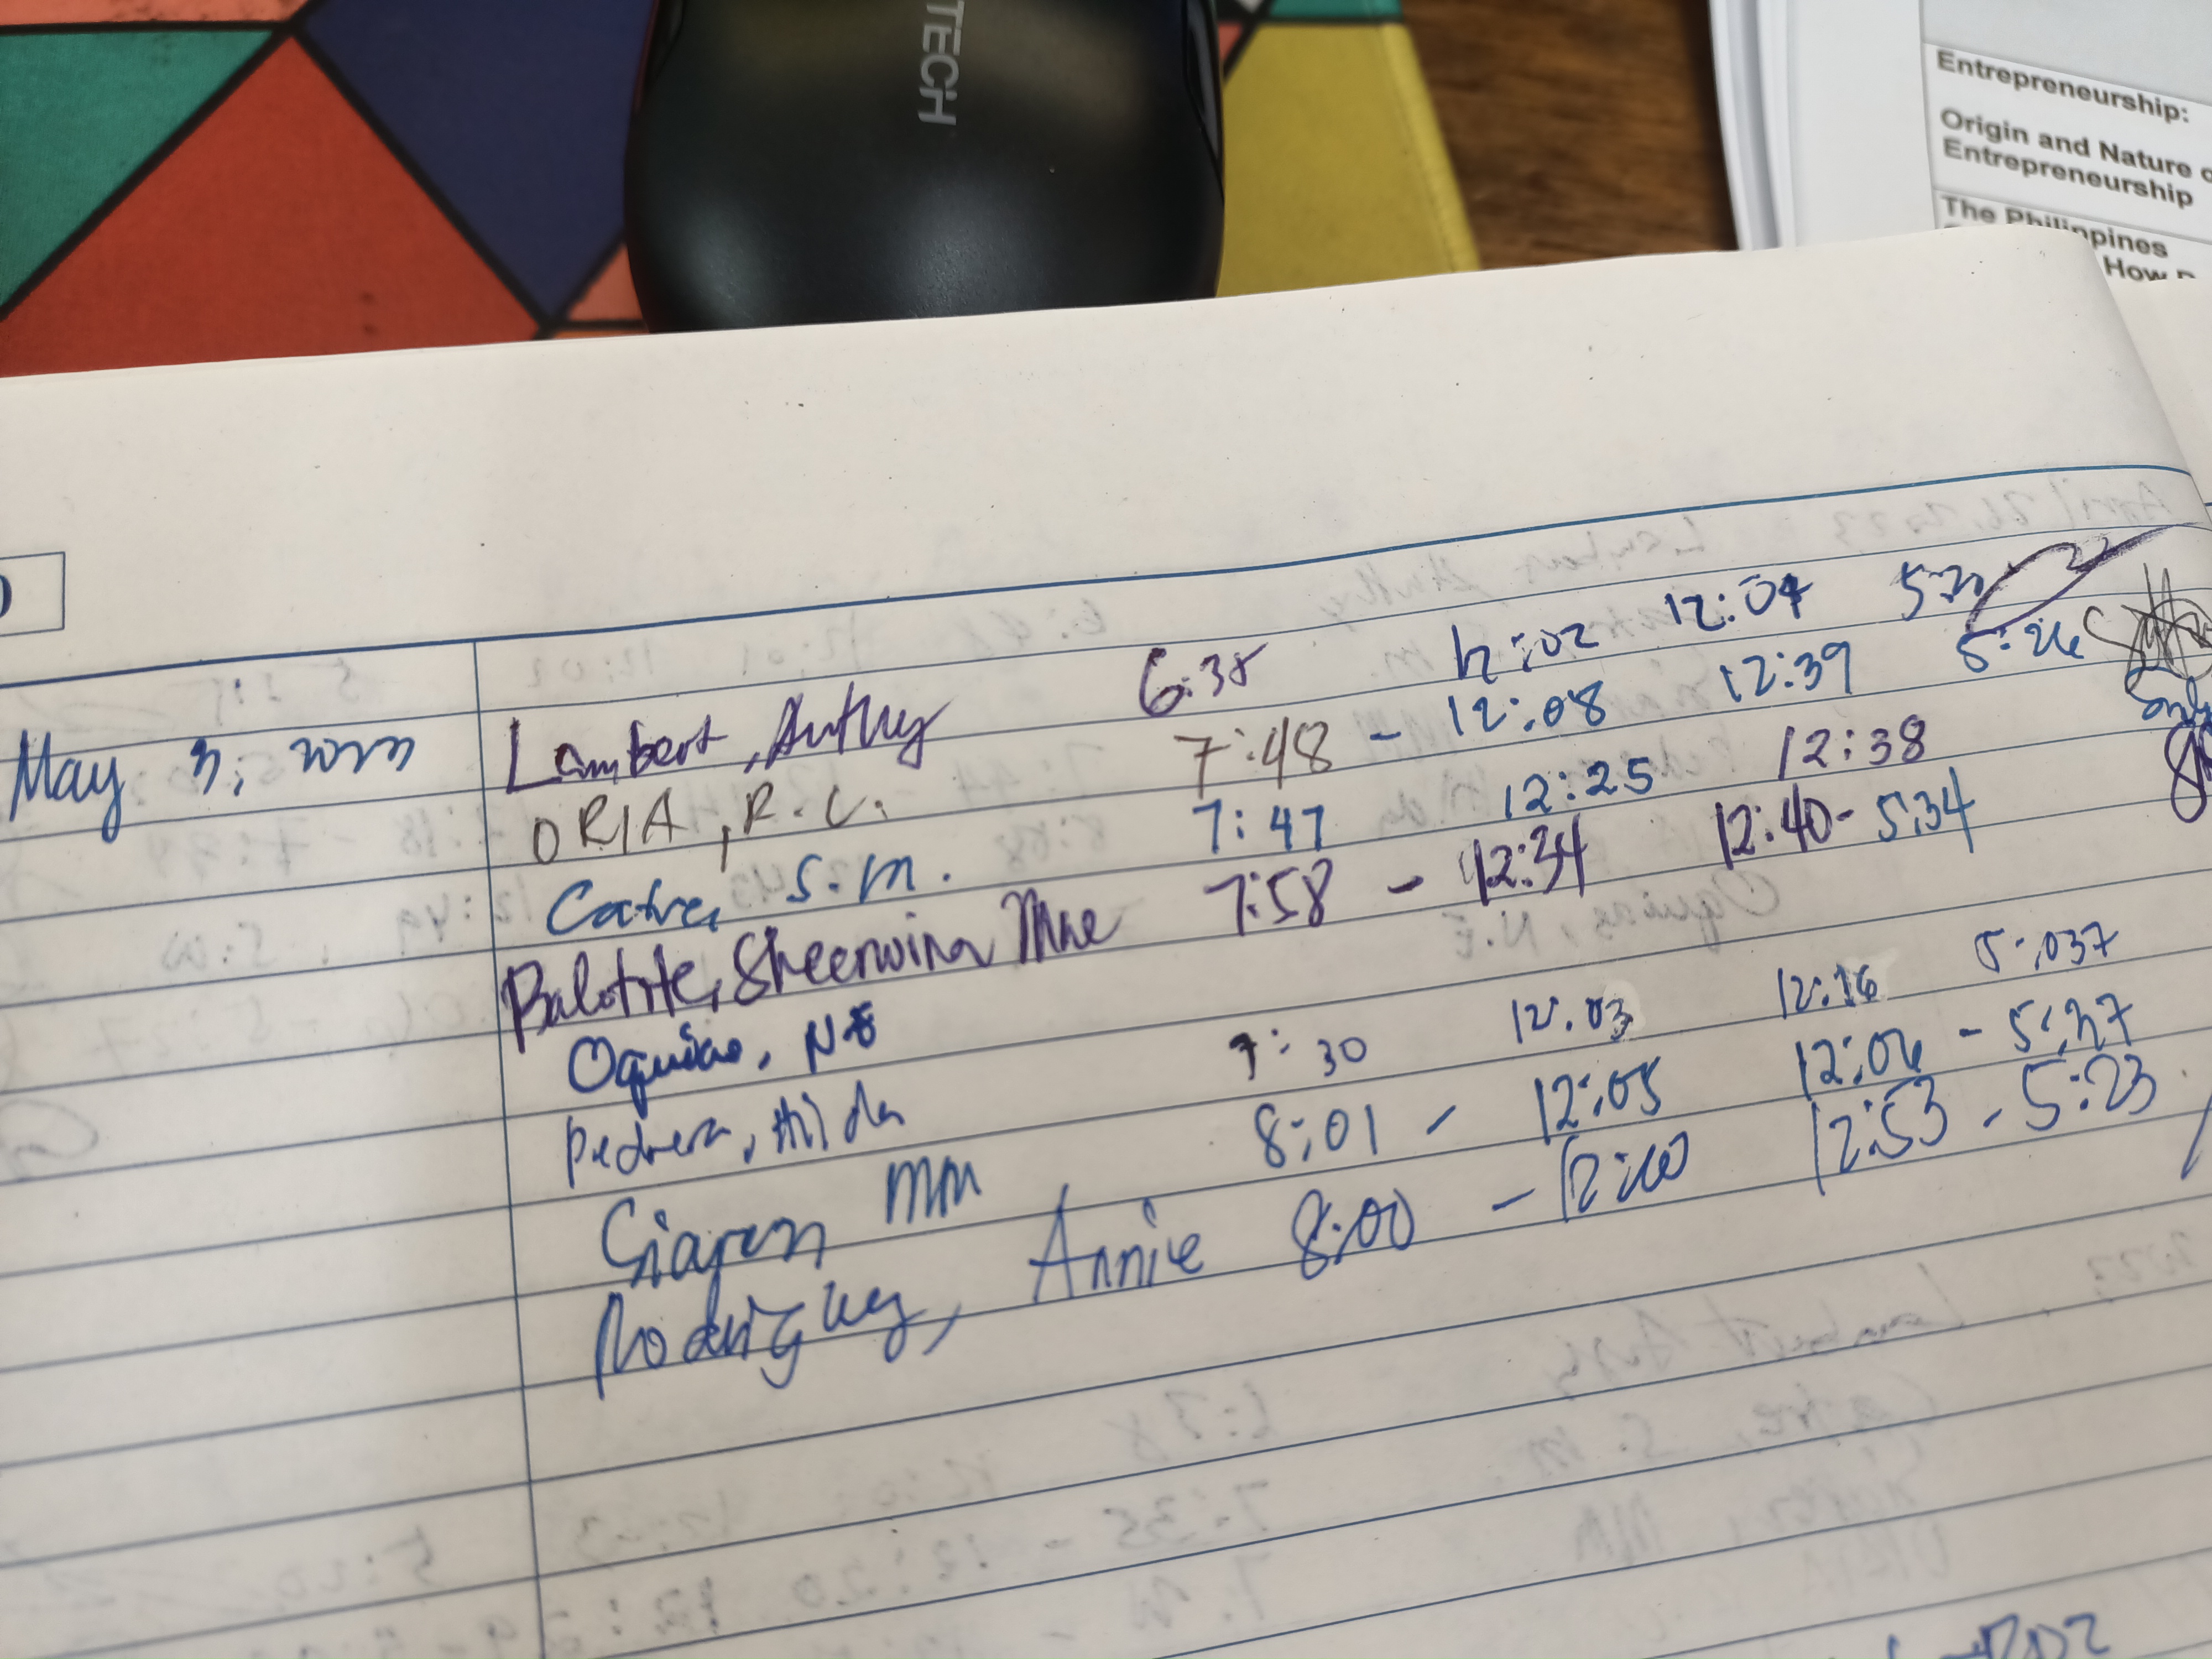 TECH
Entrepreneurship:
Origin and Nature o
Entrepreneurship
The Philippines
How
May 3, 2023 Lambert, Anthy 6:38 12:02 12:04
ORIA, R.C. 7:48 - 12:08 12:39 5:26
Catre, S.M. 7:47 12:25 12:38
Balotite, Sheerwina Mae 7:58 - 12:34 12:40 - 5:34
Oquias, N.E
Pedrera, Hilda 7:30 12:03 12:16 5:037
Siapon MM 8:01 - 12:05 12:06 - 5:27
Rodriguez, Annie 8:00 - 12:10 12:53 - 5:23